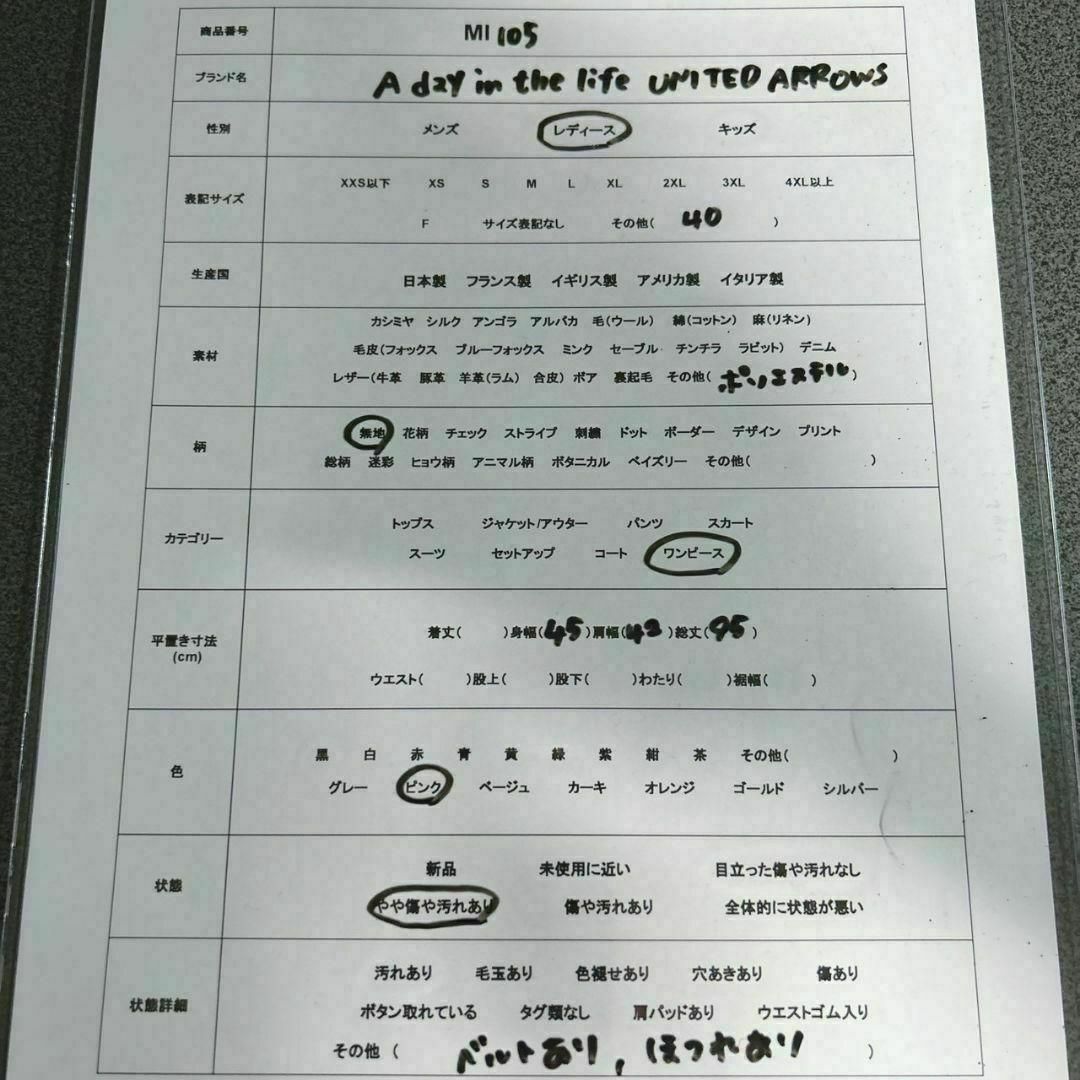 商品番号 MI 105
ブランド名 A day in the life UNITED ARROWS
性別 メンズ レディース キッズ
表記サイズ
XXS以下 XS S M L XL 2XL 3XL 4XL以上
F サイズ表記なし その他( 40 )
生産国 日本製 フランス製 イギリス製 アメリカ製 イタリア製
素材
カシミヤ シルク アンゴラ アルパカ 毛(ウール) 綿(コットン) 麻(リネン)
毛皮(フォックス ブルーフォックス ミンク セーブル チンチラ ラビット) デニム
レザー(牛革 豚革 羊革(ラム) 合皮) ボア 裏起毛 その他( ポリエステル )
柄
無地 花柄 チェック ストライプ 刺繍 ドット ボーダー デザイン プリント
総柄 迷彩 ヒョウ柄 アニマル柄 ボタニカル ペイズリー その他( )
カテゴリー
トップス ジャケット/アウター パンツ スカート
スーツ セットアップ コート ワンピース
平置き寸法
(cm)
着丈( )身幅(45)肩幅(42)総丈(95)
ウエスト( )股上( )股下( )わたり( )裾幅( )
色
黒 白 赤 青 黄 緑 紫 紺 茶 その他( )
グレー ピンク ベージュ カーキ オレンジ ゴールド シルバー
状態
新品 未使用に近い 目立った傷や汚れなし
やや傷や汚れあり 傷や汚れあり 全体的に状態が悪い
状態詳細
汚れあり 毛玉あり 色褪せあり 穴あきあり 傷あり
ボタン取れている タグ類なし 肩パッドあり ウエストゴム入り
その他 ( ベルトあり, ほつれあり )